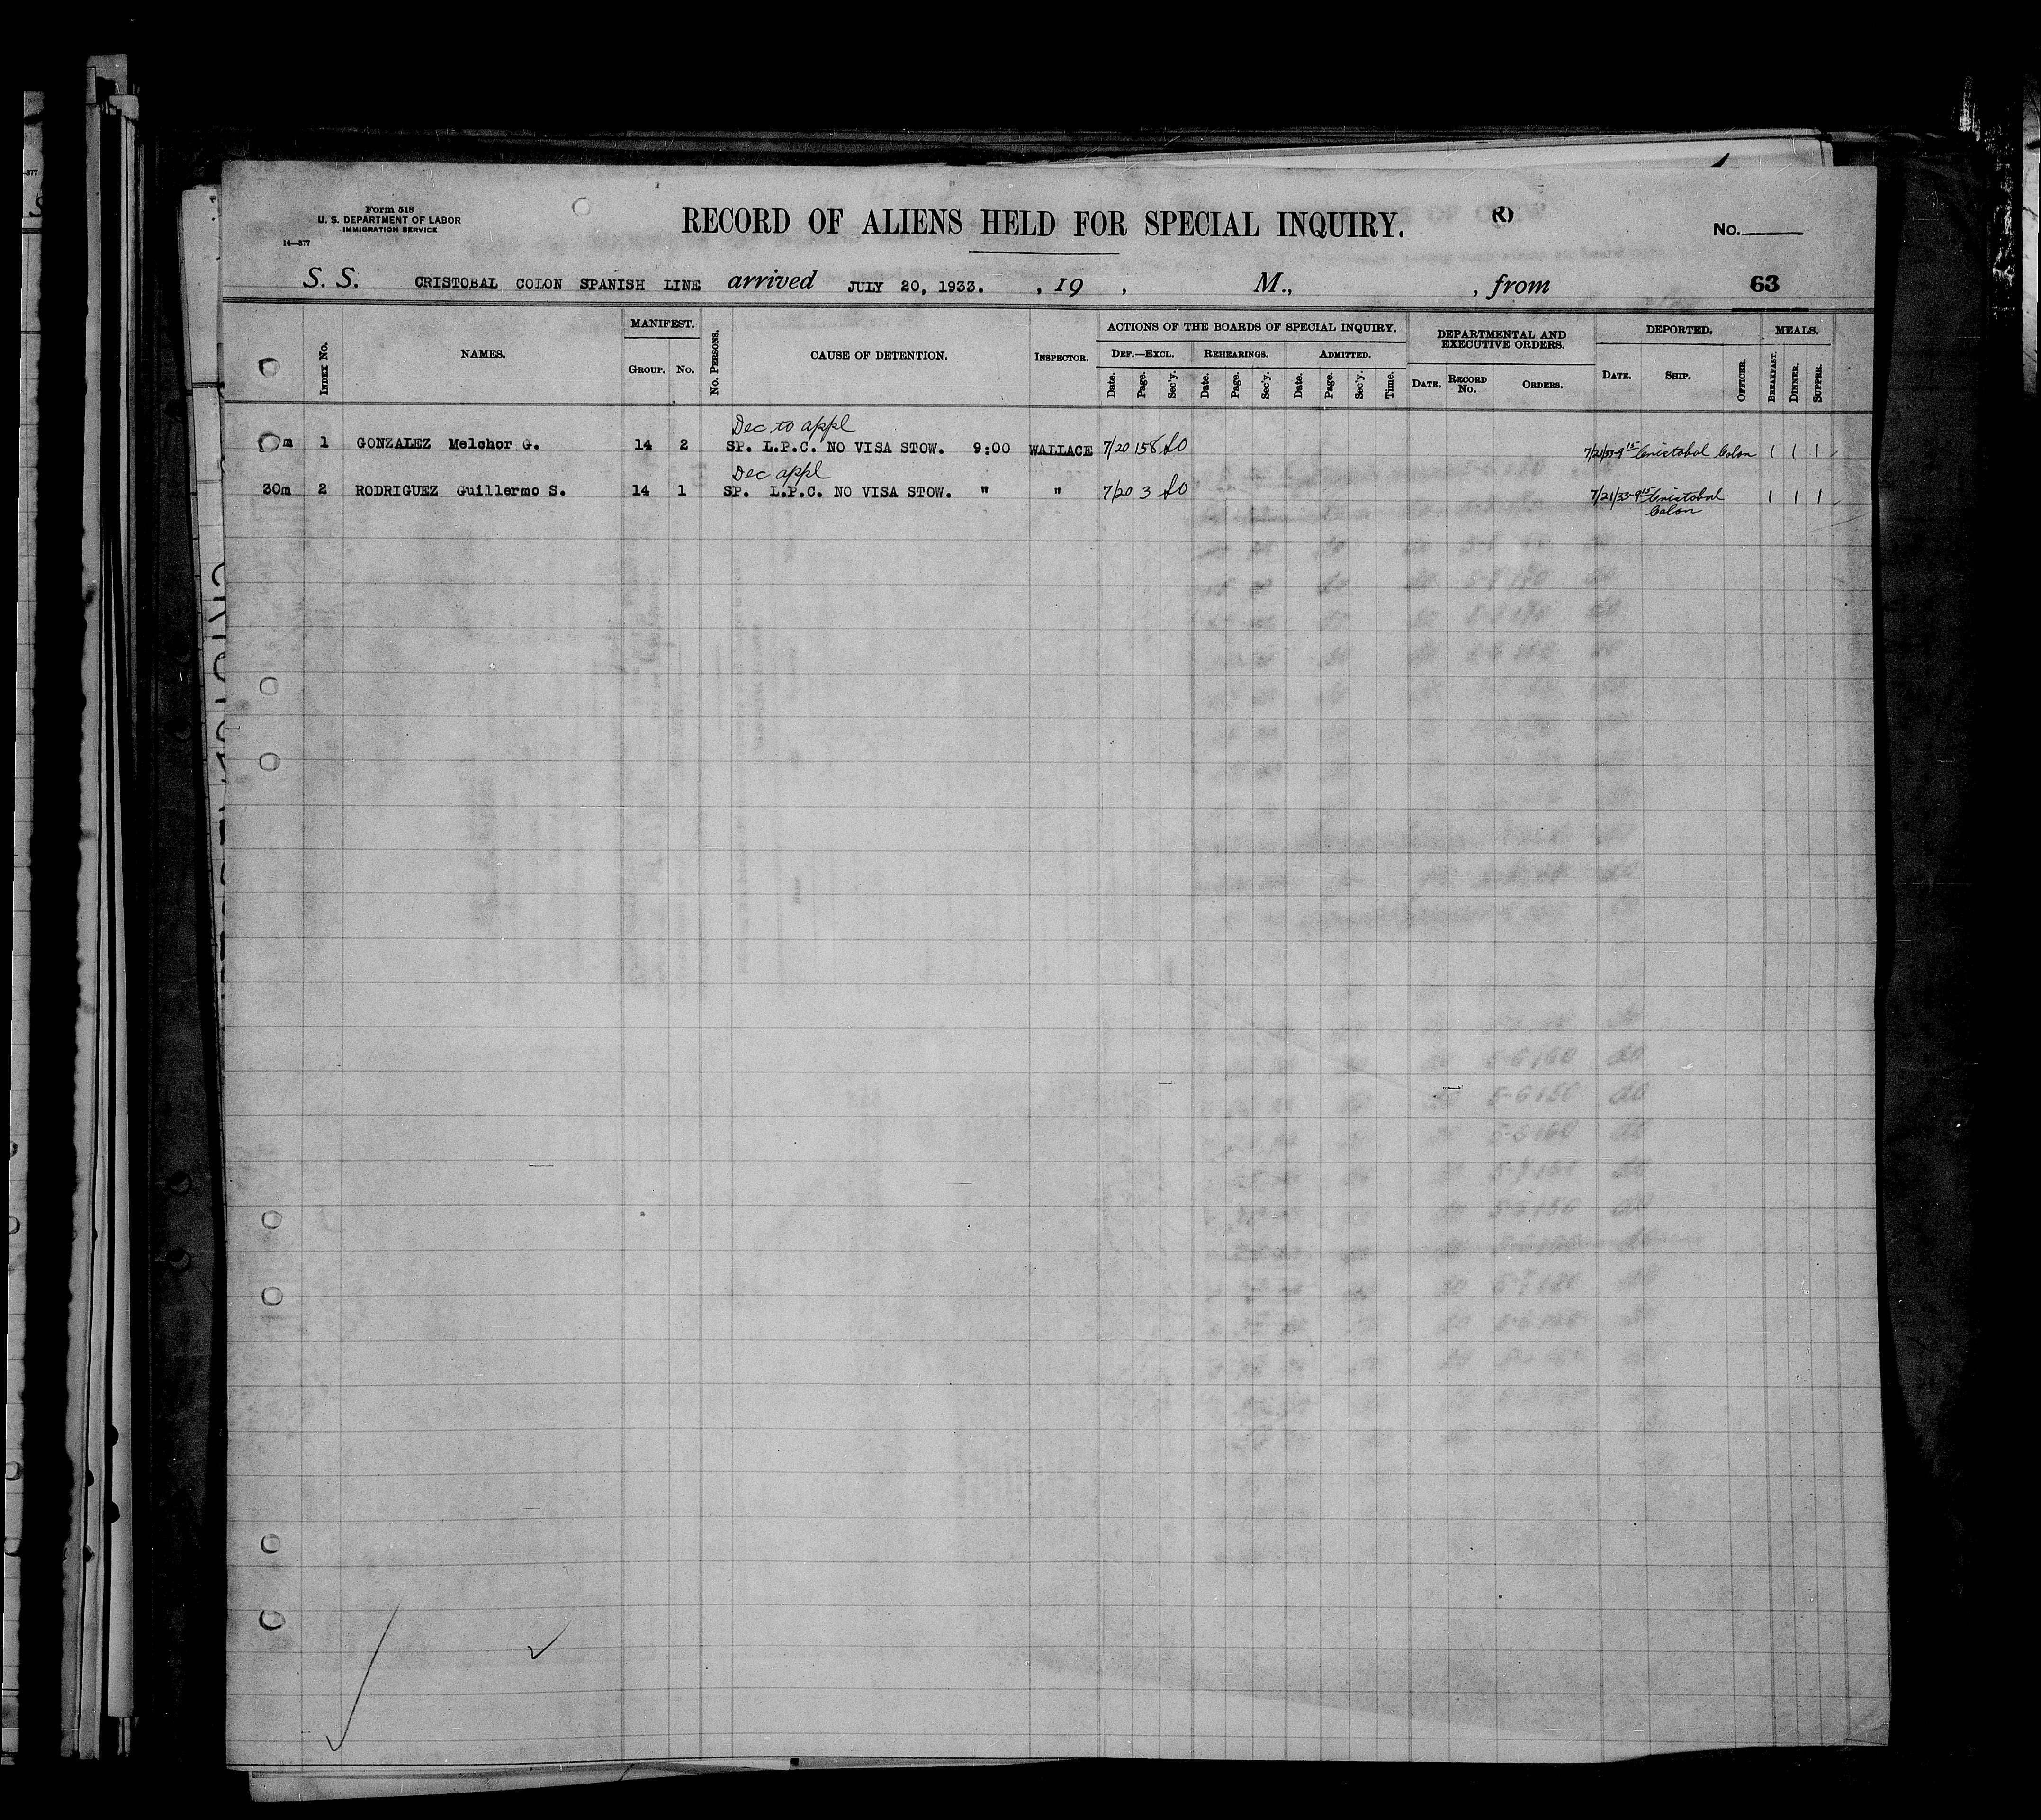 Form 518
U. S. DEPARTMENT OF LABOR
IMMIGRATION SERVICE
14—377
RECORD OF ALIENS HELD FOR SPECIAL INQUIRY.
(R)
No.
S. S. CRISTOBAL COLON SPANISH LINE arrived JULY 20, 1933. , 19 , M., , from 63
INDEX No. NAMES. MANIFEST. GROUP. No. No. PERSONS. CAUSE OF DETENTION. INSPECTOR.
ACTIONS OF THE BOARDS OF SPECIAL INQUIRY.
DEF.—EXCL. Date. Page. Sec'y. REHEARINGS. Date. Page. Sec'y. ADMITTED. Date. Page. Sec'y. Time.
DEPARTMENTAL AND EXECUTIVE ORDERS. DATE. RECORD No. ORDERS.
DEPORTED. DATE. SHIP. OFFICER. MEALS. BREAKFAST. DINNER. SUPPER.
Dec to appl
m 1 GONZALEZ Melchor G. 14 2 SP. L.P.C. NO VISA STOW. 9:00 WALLACE 7/20 158 7/21/33-9 15 Cristobal Colon 1 1 1
Dec appl
30m 2 RODRIGUEZ Guillermo S. 14 1 SP. L.P.C. NO VISA STOW. " " 7/20 3 7/21/33-9 15 Cristobal 1 1 1
Colon